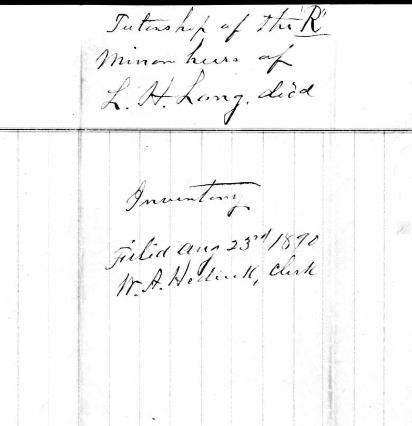 Tutorship of the "R"
Minor heirs of
L. H. Long, dec'd
Inventory
Filed Aug 23rd 1890
W. A. Clerk